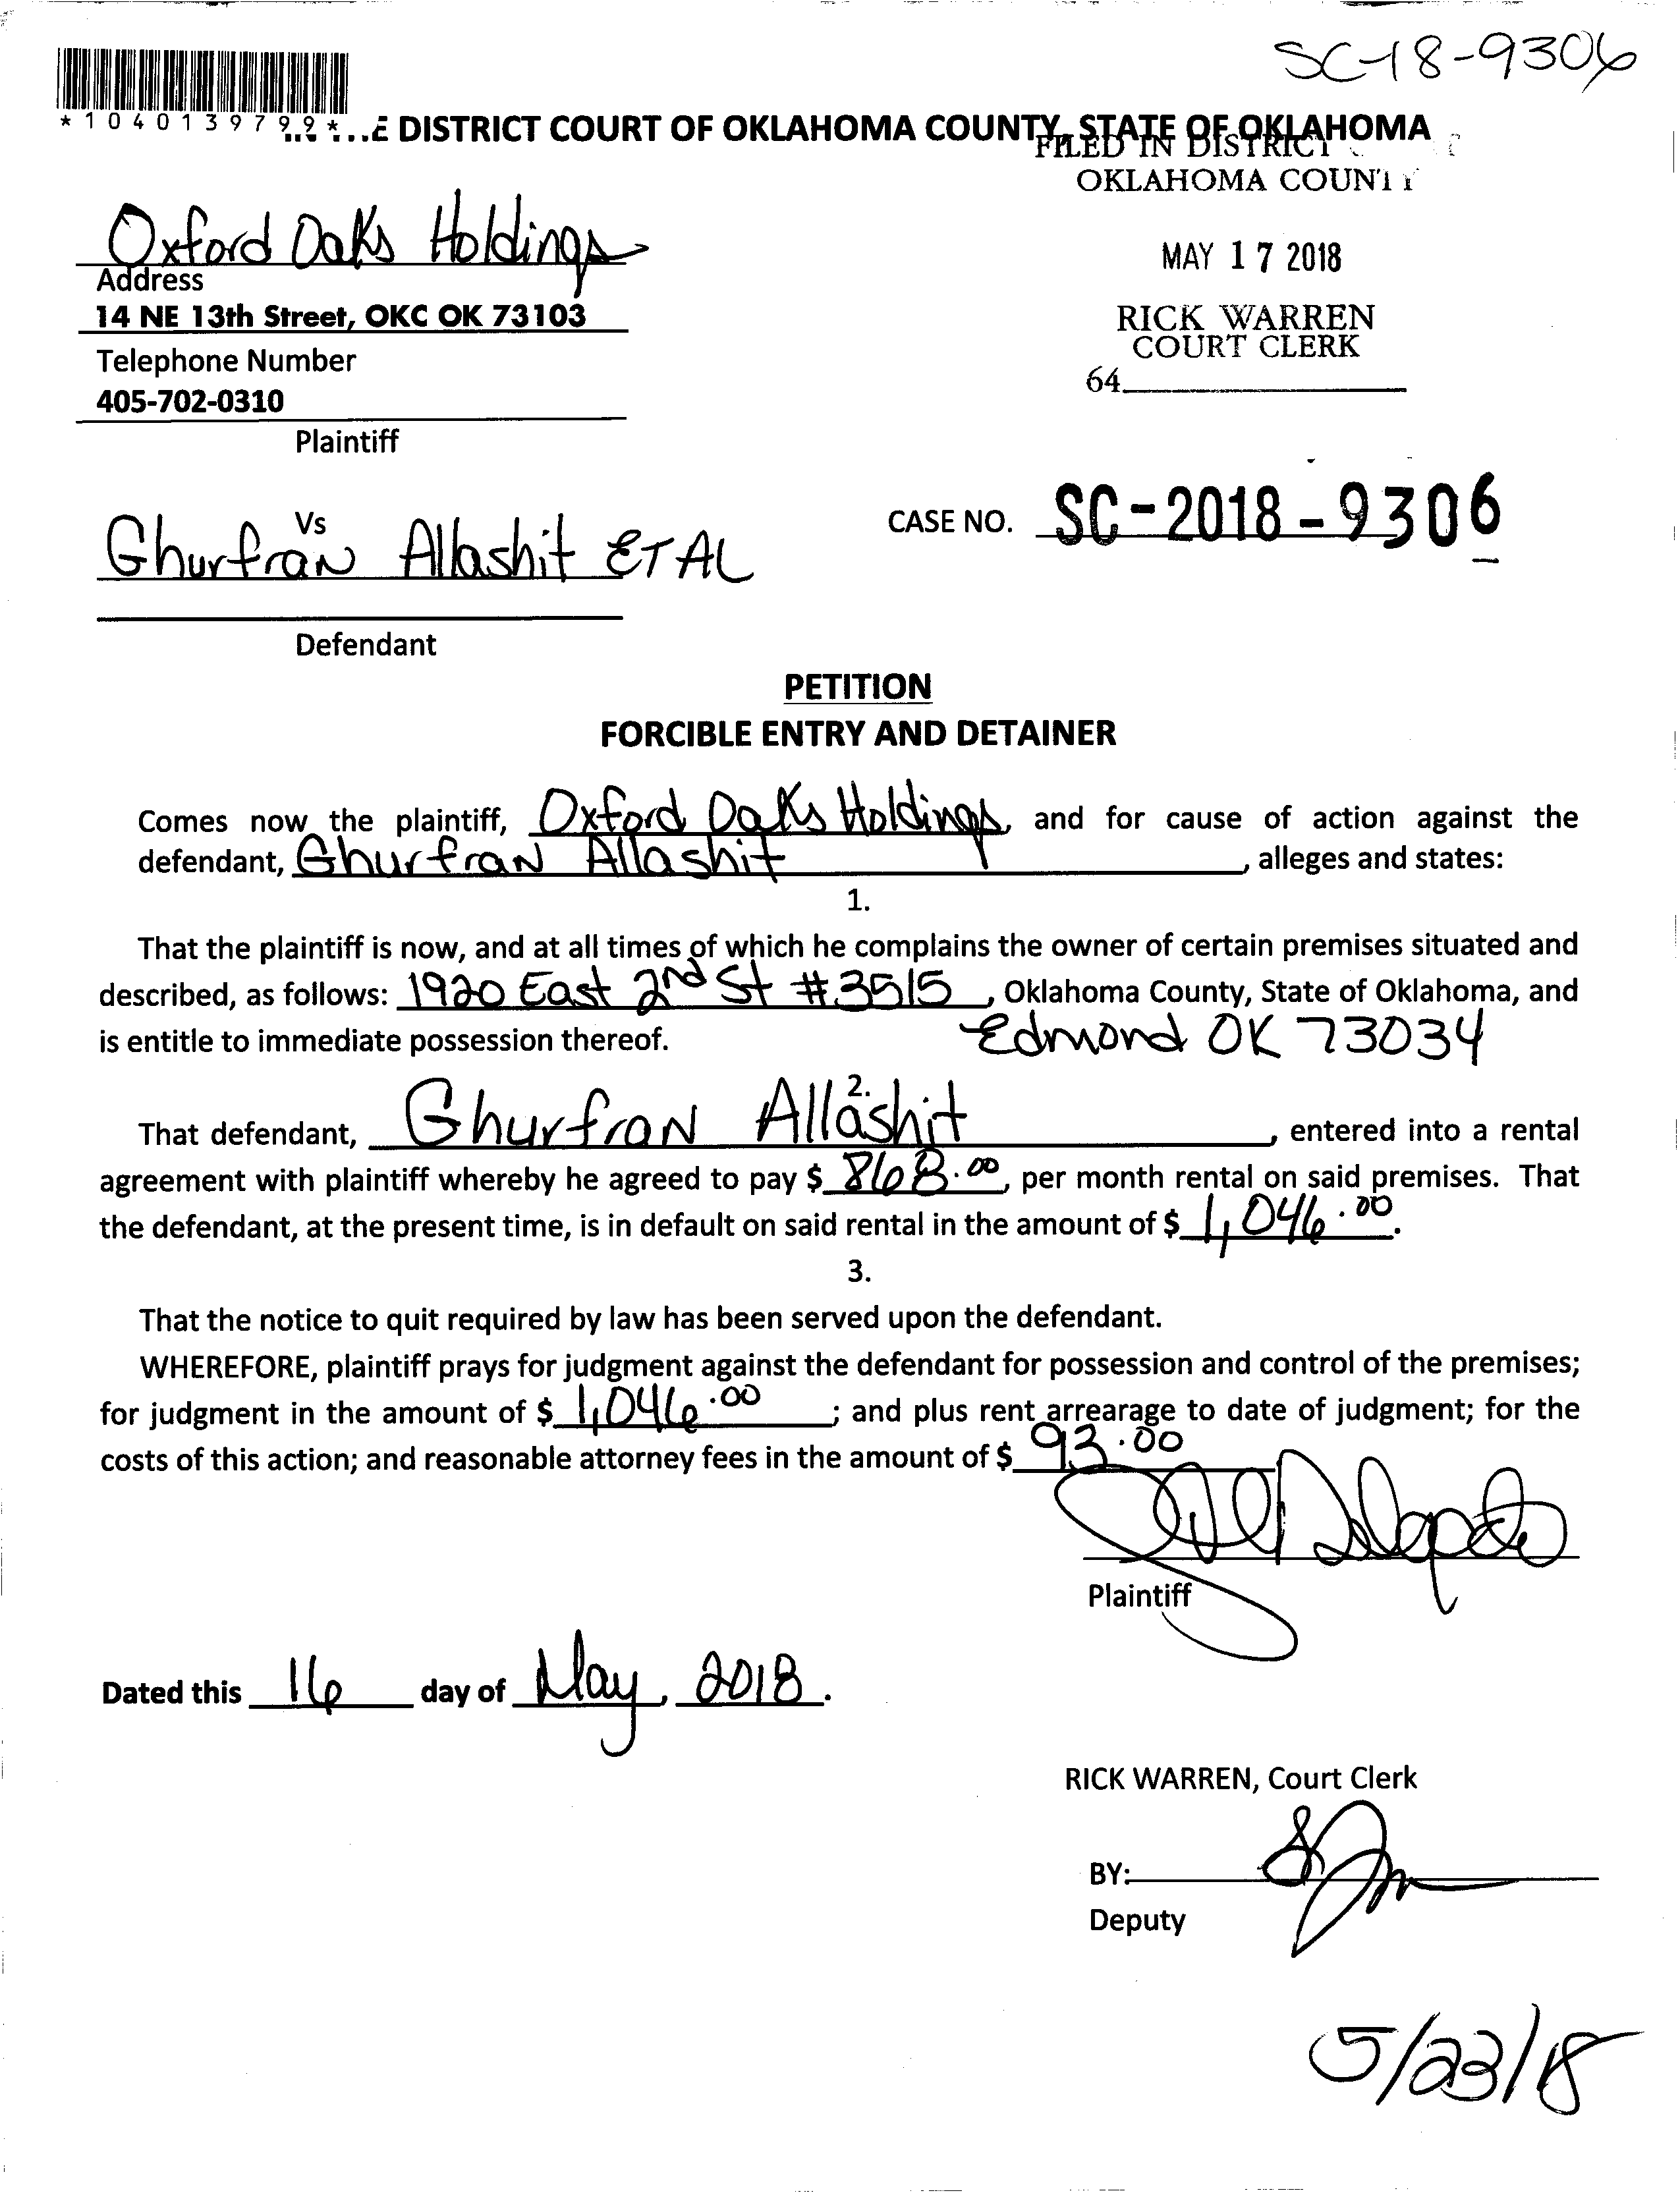 SC-18-9306
*1040139799*
E DISTRICT COURT OF OKLAHOMA COUNTY, STATE OF OKLAHOMA
FILED IN DISTRICT
OKLAHOMA COUNTY
Oxford Oaks Holdings
Address
14 NE 13th Street, OKC OK 73103
Telephone Number
405-702-0310
Plaintiff
MAY 17 2018
RICK WARREN
COURT CLERK
64
Vs
Ghurfran Allashit ET AL
Defendant
CASE NO. SC-2018-9306
PETITION
FORCIBLE ENTRY AND DETAINER
Comes now the plaintiff, Oxford Oaks Holdings, and for cause of action against the
defendant, Ghurfran Allashit, alleges and states:
1.
That the plaintiff is now, and at all times of which he complains the owner of certain premises situated and
described, as follows: 1920 East 2nd St #3515, Oklahoma County, State of Oklahoma, and
is entitle to immediate possession thereof. Edmond OK 73034
2.
That defendant, Ghurfran Allashit, entered into a rental
agreement with plaintiff whereby he agreed to pay $ 868.00, per month rental on said premises. That
the defendant, at the present time, is in default on said rental in the amount of $ 1,046.00.
3.
That the notice to quit required by law has been served upon the defendant.
WHEREFORE, plaintiff prays for judgment against the defendant for possession and control of the premises;
for judgment in the amount of $ 1,046.00 ; and plus rent arrearage to date of judgment; for the
costs of this action; and reasonable attorney fees in the amount of $ 93.00
Plaintiff
Dated this 16 day of May, 2018.
RICK WARREN, Court Clerk
BY:
Deputy
5/23/18